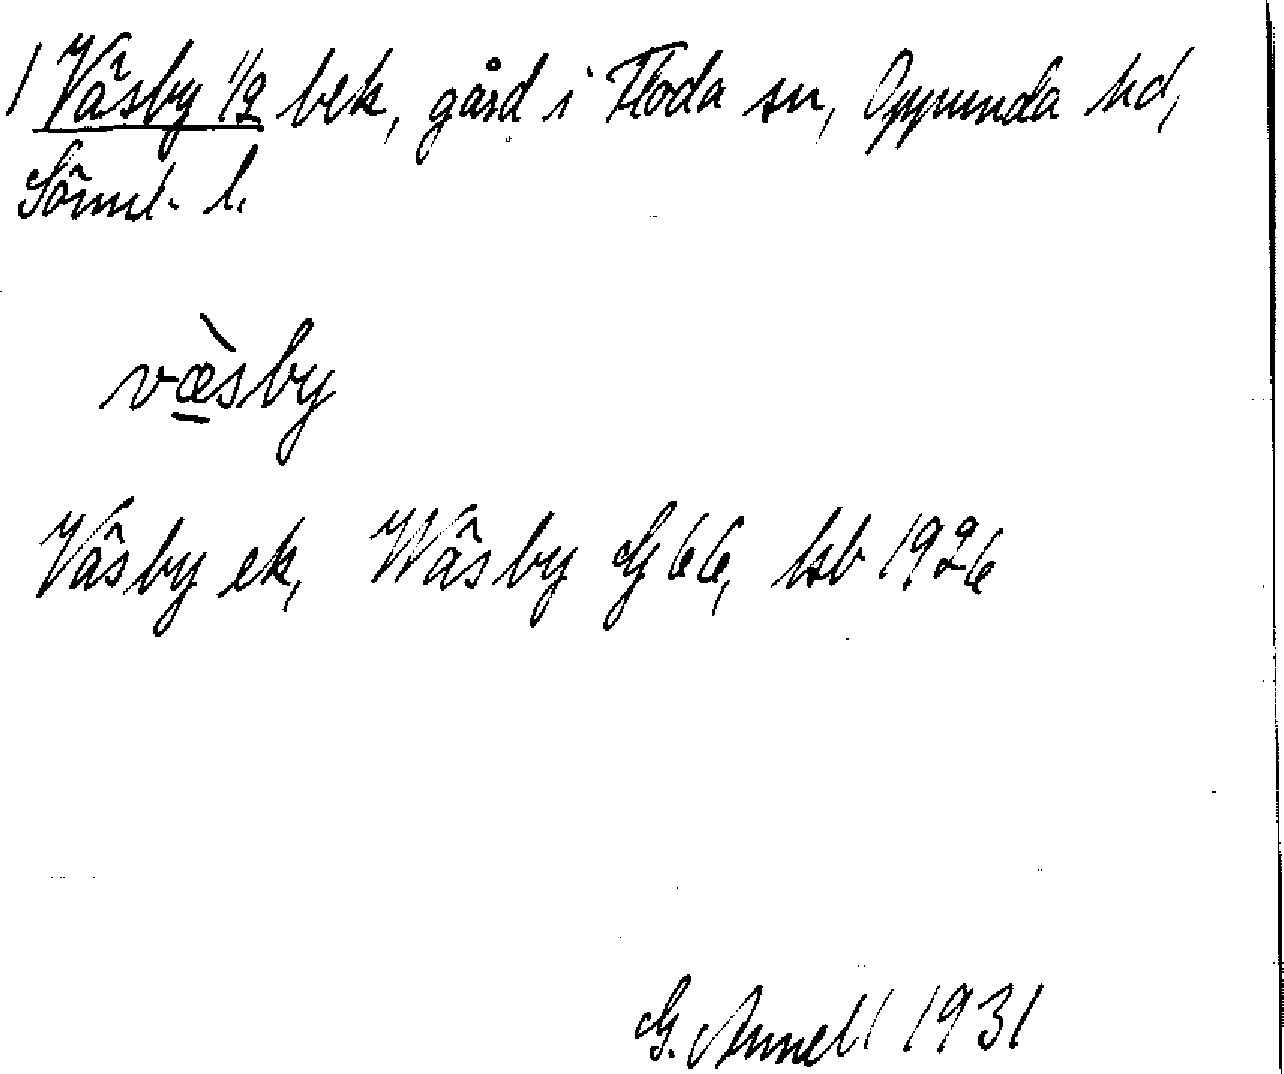 1 Väsby 1/2 bek, gård i Floda sn, Oppunda hd,
Söml. l.
væ̱̀sby
Väsby ek, Wäsby G 66, hsb 1926
G. Annell 1931